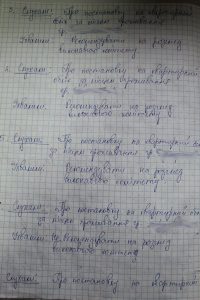 3. Слухали: Про постановку на квартирний
облік за місцем проживання
гр.
Ухвалили: Рекомендувати на розгляд
виконавчого комітету
4. Слухали: Про постановку на квартирний
облік за місцем проживання
гр.
Ухвалили: Рекомендувати на розгляд
виконавчого комітету
5. Слухали: Про постановку на квартирний облік
за місцем проживання гр.
Ухвалили: Рекомендувати на розгляд
виконавчого комітету
Слухали: Про постановку на квартирний облік
за місцем проживання гр.
Ухвалили: Рекомендувати на розгляд
виконавчого комітету
Слухали: Про постановку на квартирний